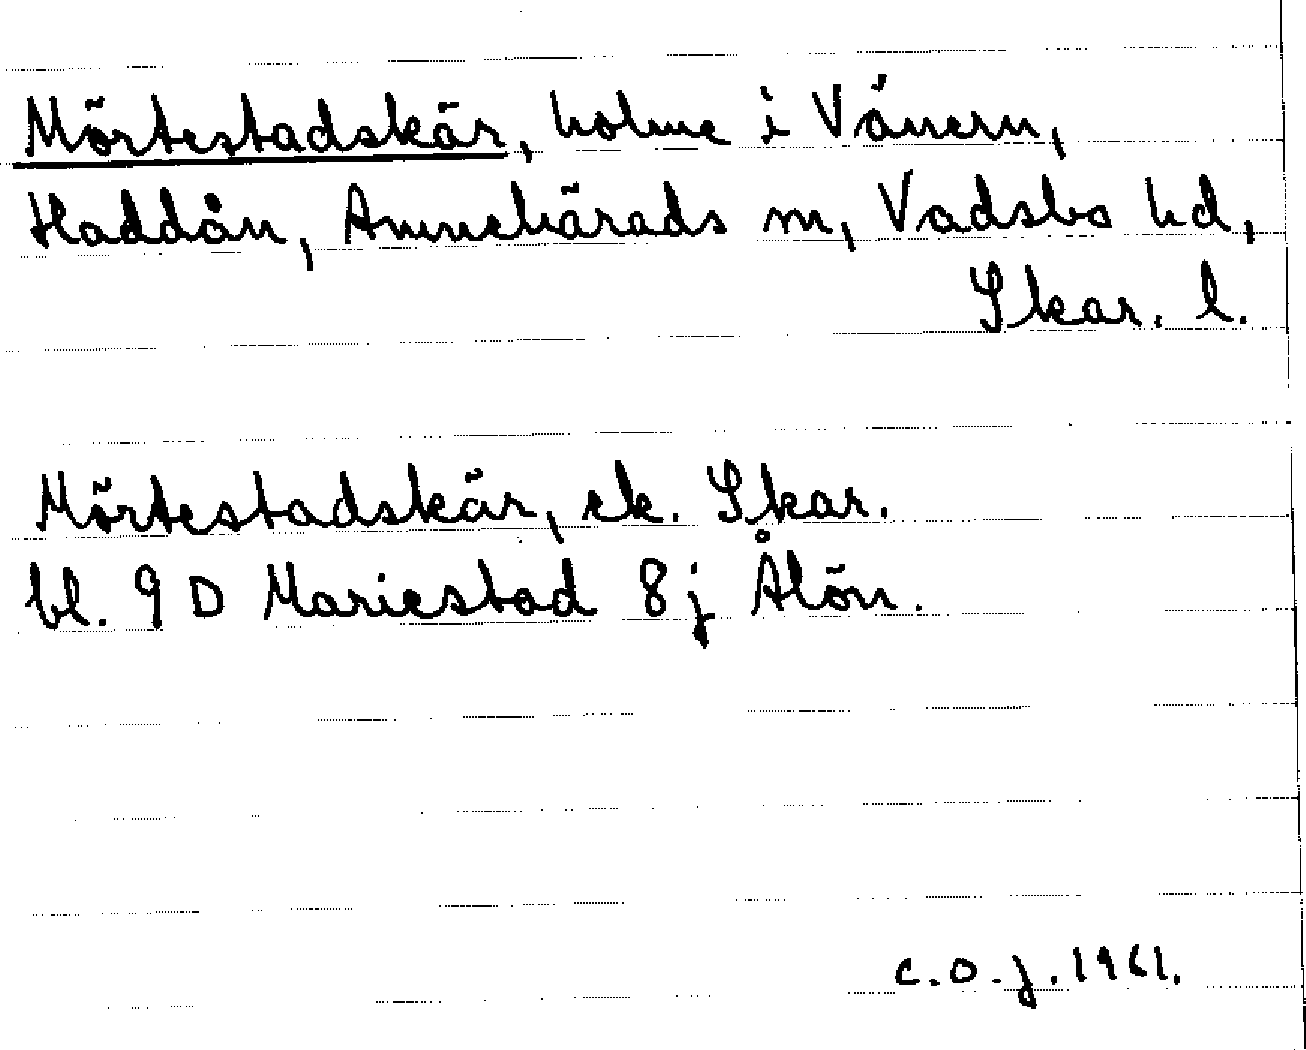 Mörtestadskär, holme i Vänern,
Haddån, Amnehärads sn, Vadsbo hd,
Skar. l.
Mörtestadskär, ek. Skar.
bl. 9 D Mariestad 8 j Ålön.
C.O.J. 1961.